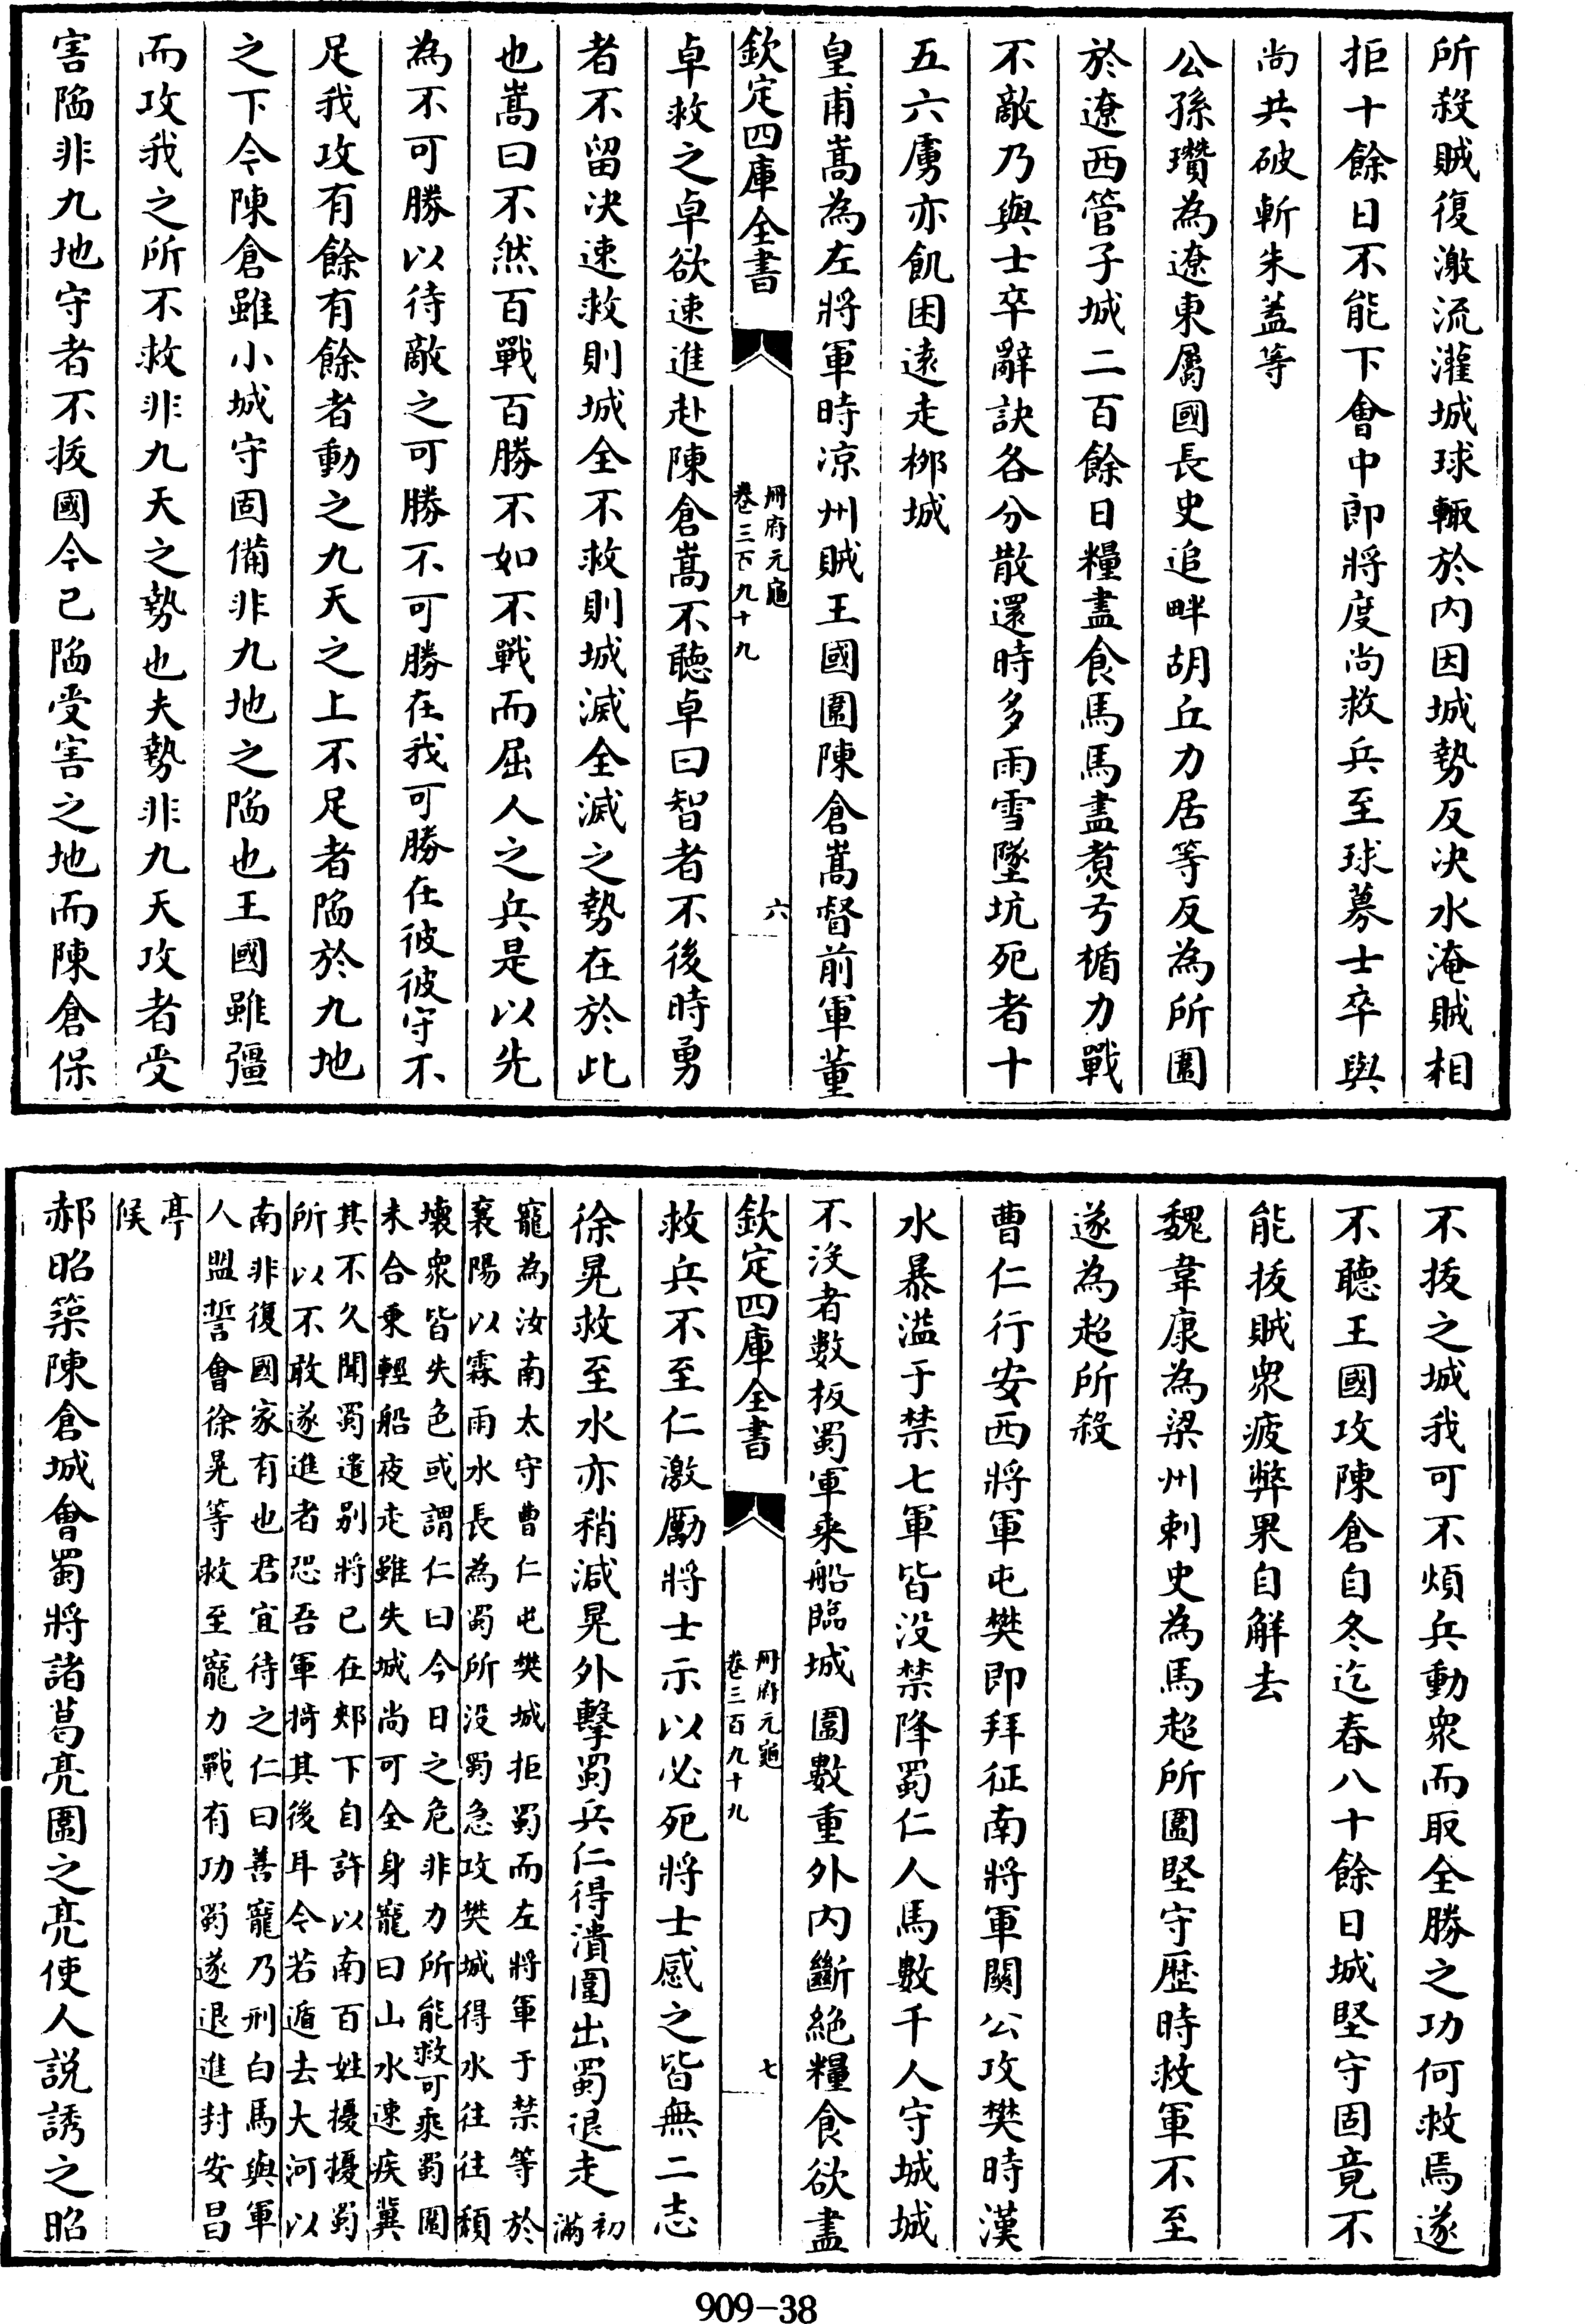 所殺賊復激流灌城球輙於内因城勢反决水淹賊相
拒十餘日不能下會中郎將度尚救兵至球募士卒與
尚共破斬朱蓋等
公孫瓚為遼東屬國長史追畔胡丘力居等反為所圍
於遼西管子城二百餘日糧盡食馬馬盡煑弩楯力戰
不敵乃與士卒辭訣各分散還時多雨雪墜坑死者十
五六虜亦飢困遠走桞城
皇甫嵩為左將軍時凉州賊王國圍陳倉嵩督前軍董
欽定四庫全書
冊府元龜
卷三百九十九
六
卓救之卓欲速進赴陳倉嵩不聽卓曰智者不後時勇
者不留决速救則城全不救則城滅全滅之勢在於此
也嵩曰不然百戰百勝不如不戰而屈人之兵是以先
為不可勝以待敵之可勝不可勝在我可勝在彼彼守不
足我攻有餘有餘者動之九天之上不足者陷於九地
之下今陳倉雖小城守固備非九地之陷也王國雖彊
而攻我之所不救非九天之勢也夫勢非九天攻者受
害陷非九地守者不拔國今已陷受害之地而陳倉保
不拔之城我可不煩兵動衆而取全勝之功何救焉遂
不聽王國攻陳倉自冬迄春八十餘日城堅守固竟不
能拔賊衆疲弊果自解去
魏韋康為梁州刺史為馬超所圍堅守歴時救軍不至
遂為超所殺
曹仁行安西將軍屯樊即拜征南將軍關公攻樊時漢
水暴溢于禁七軍皆没禁降蜀仁人馬數千人守城城
不没者數板蜀軍乘船臨城圍數重外内斷絶糧食欲盡
欽定四庫全書
冊府元龜
卷三百九十九
七
救兵不至仁激厲將士示以必死將士感之皆無二志
徐晃救至水亦稍減晃外擊蜀兵仁得潰圍出蜀退走初
滿
寵為汝南太守曹仁屯樊城拒蜀而左將軍于禁等於
襄陽以霖雨水長為蜀所没蜀急攻樊城得水往往頹
壊衆皆失色或謂仁曰今日之危非力所能救可乘蜀圍
未合乘輕船夜走雖失城尚可全身寵曰山水速疾冀
其不久聞蜀遣别將已在郟下自許以南百姓擾擾蜀
所以不敢遂進者恐吾軍掎其後耳今若遁去大河以
南非復國家有也君宜待之仁曰善寵乃刑白馬與軍
人盟誓會徐晃等救至寵力戰有功蜀遂退進封安昌
亭
候
郝昭築陳倉城會蜀將諸葛亮圍之亮使人説誘之昭
909-38